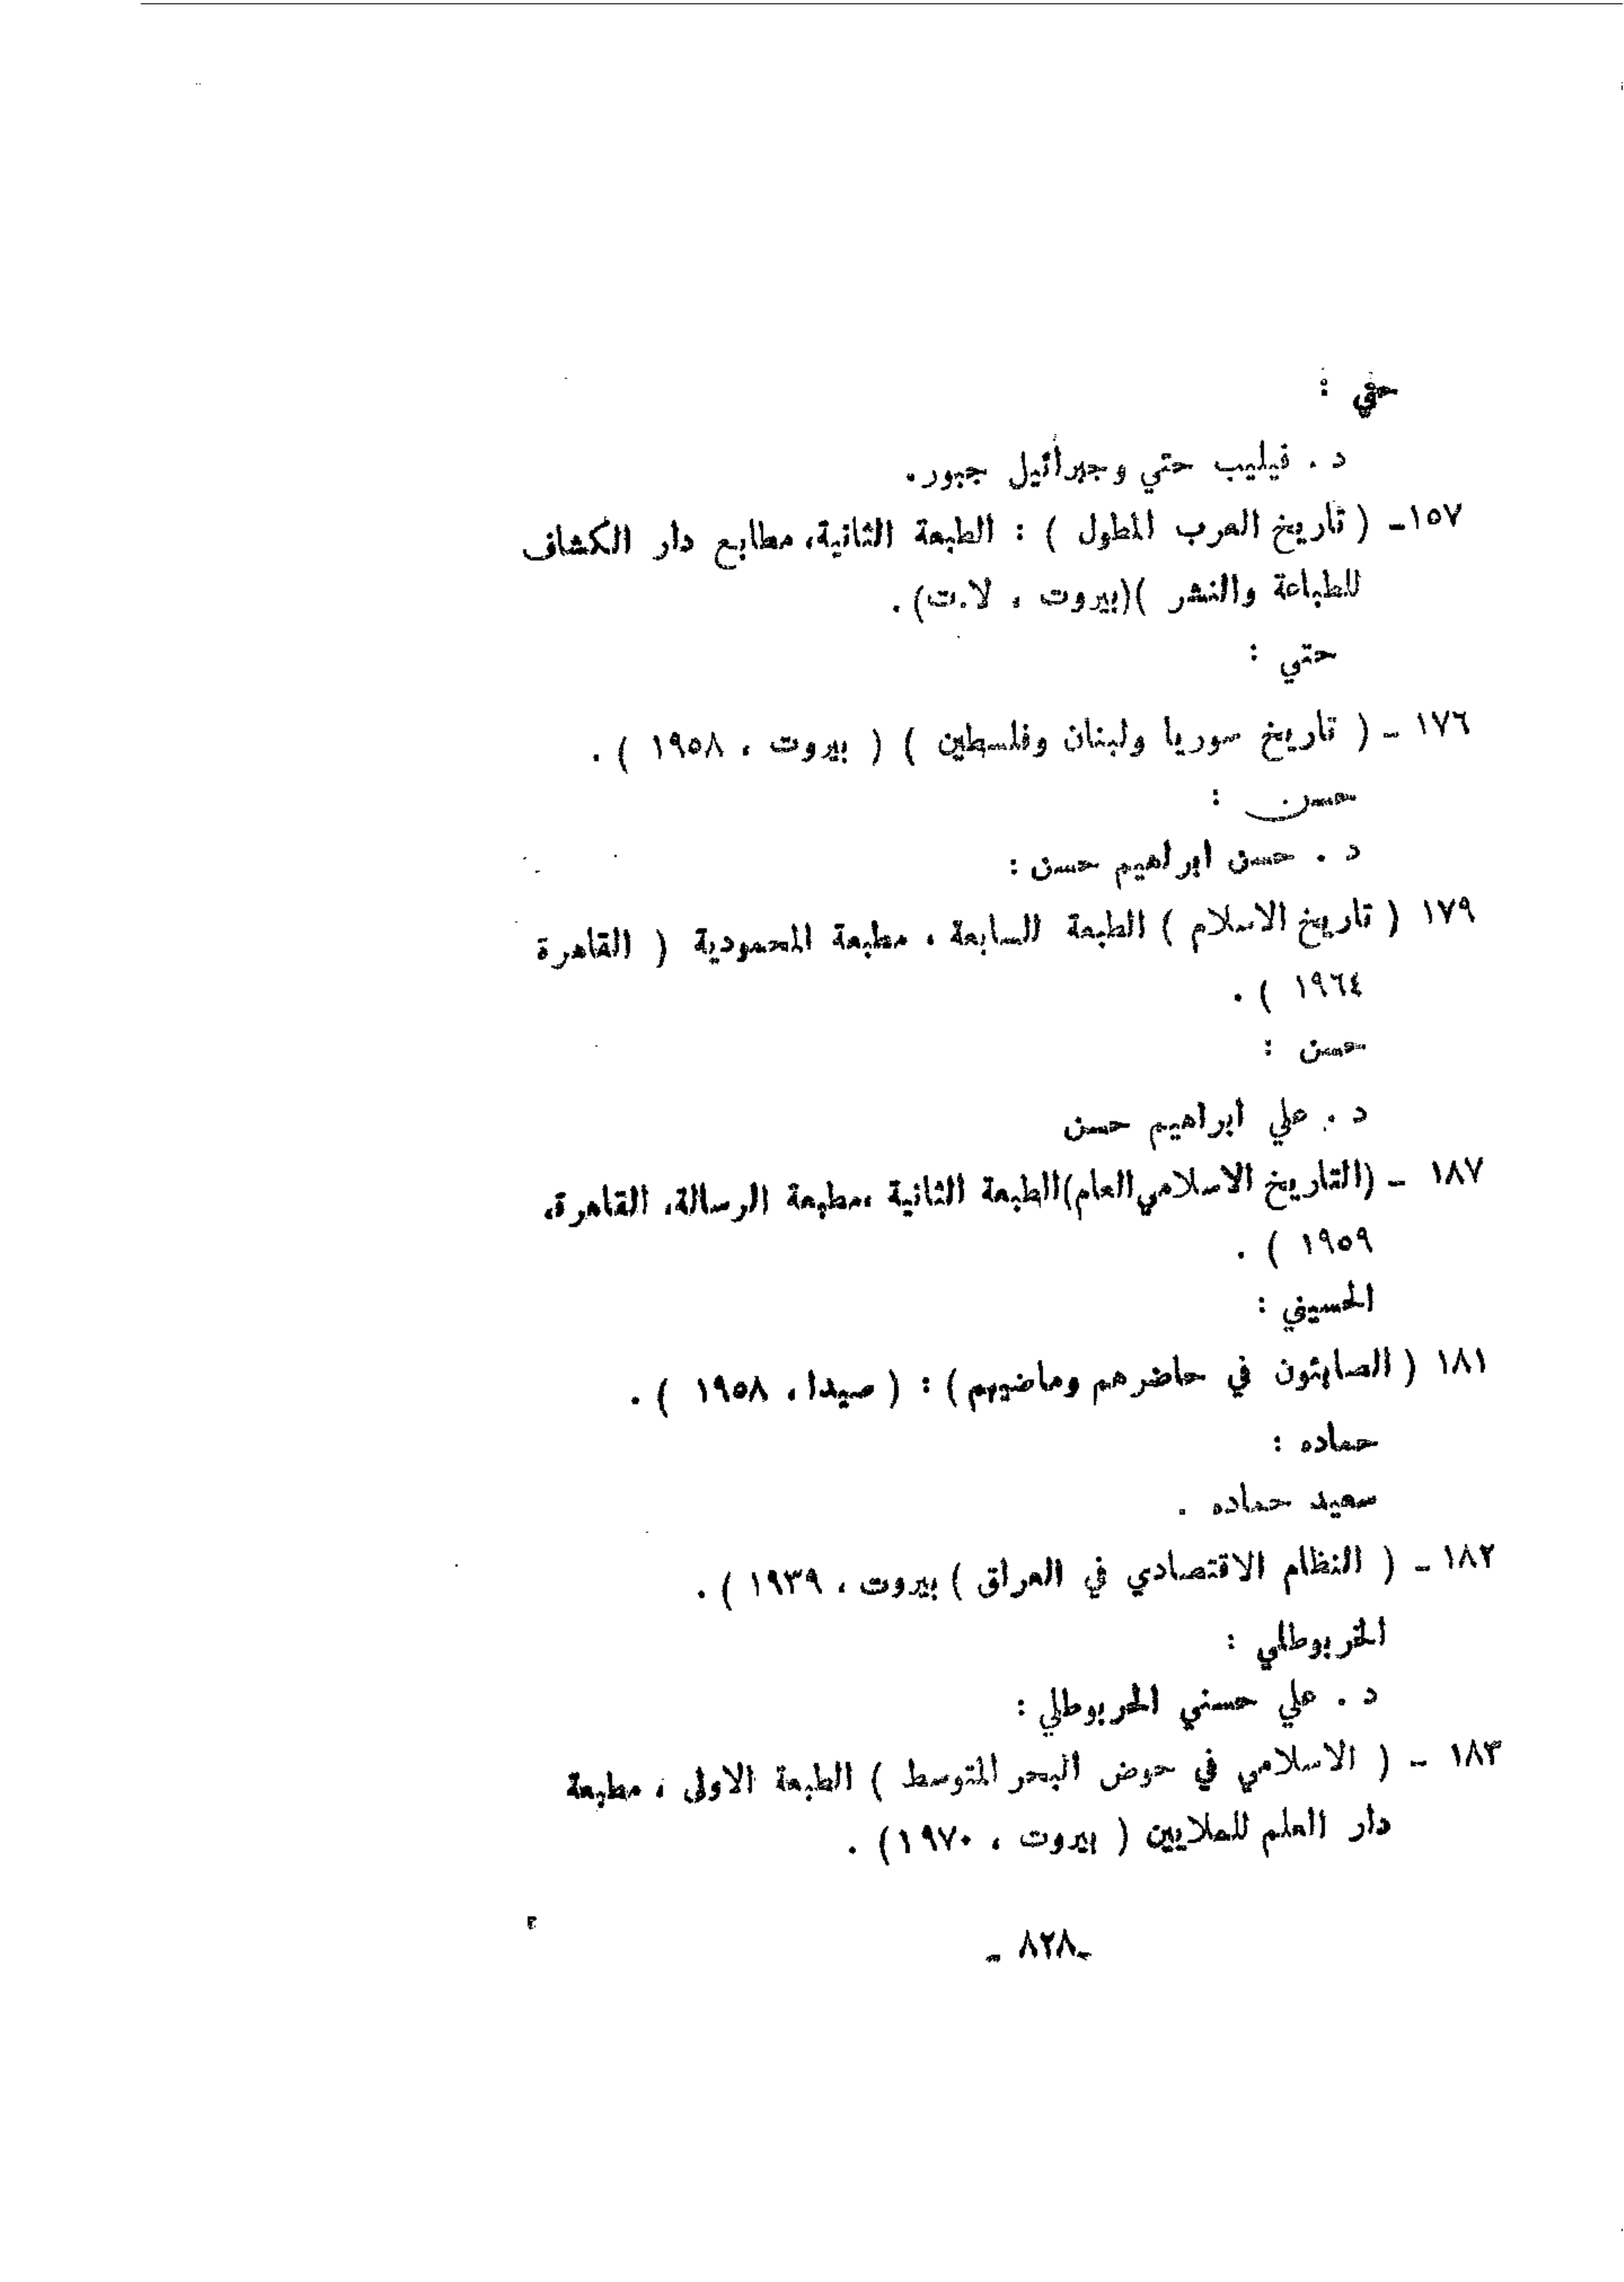 حتي :
د . فيليب حتي وجبرائيل جبور.
١٥٧- ( تاريخ العرب المطول ) : الطبعة الثانية، مطابع دار الكشاف
للطباعة والنشر )(بيروت ، لا.ت) .
حتي :
١٧٦ - ( تاريخ سوريا ولبنان وفلسطين ) ( بيروت ، ١٩٥٨ ) .
حسن :
د . حسن ابراهيم حسن :
١٧٩ ( تاريخ الاسلام ) الطبعة السابعة ، مطبعة المحمودية ( القاهرة
١٩٦٤ ) .
حسن :
د . علي ابراهيم حسن
١٨٧ - (التاريخ الاسلامي العام)الطبعة الثانية ،مطبعة الرسالة، القاهرة،
١٩٥٩ ) .
الحسيني :
١٨١ ( الصابئون في حاضرهم وماضيهم ) : ( صيدا ، ١٩٥٨ ) .
حماده :
سعيد حماده .
١٨٢ - ( النظام الاقتصادي في العراق ) بيروت ، ١٩٣٩ ) .
الخربوطلي :
د . علي حسني الخربوطلي :
١٨٣ - ( الاسلامي في حوض البحر المتوسط ) الطبعة الاولى ، مطبعة
دار العلم للملايين ( بيروت ، ١٩٧٠) .
-٨٢٨ -